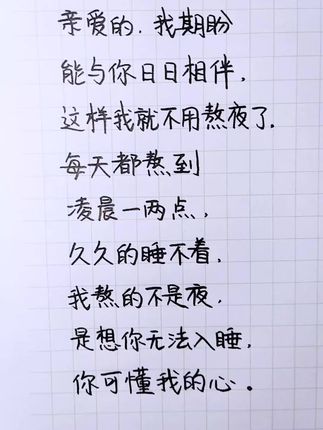 亲爱的,我期盼
能与你日日相伴,
这样我就不用熬夜了,
每天都熬到
凌晨一两点,
久久的睡不着,
我熬的不是夜,
是想你无法入睡,
你可懂我的心。